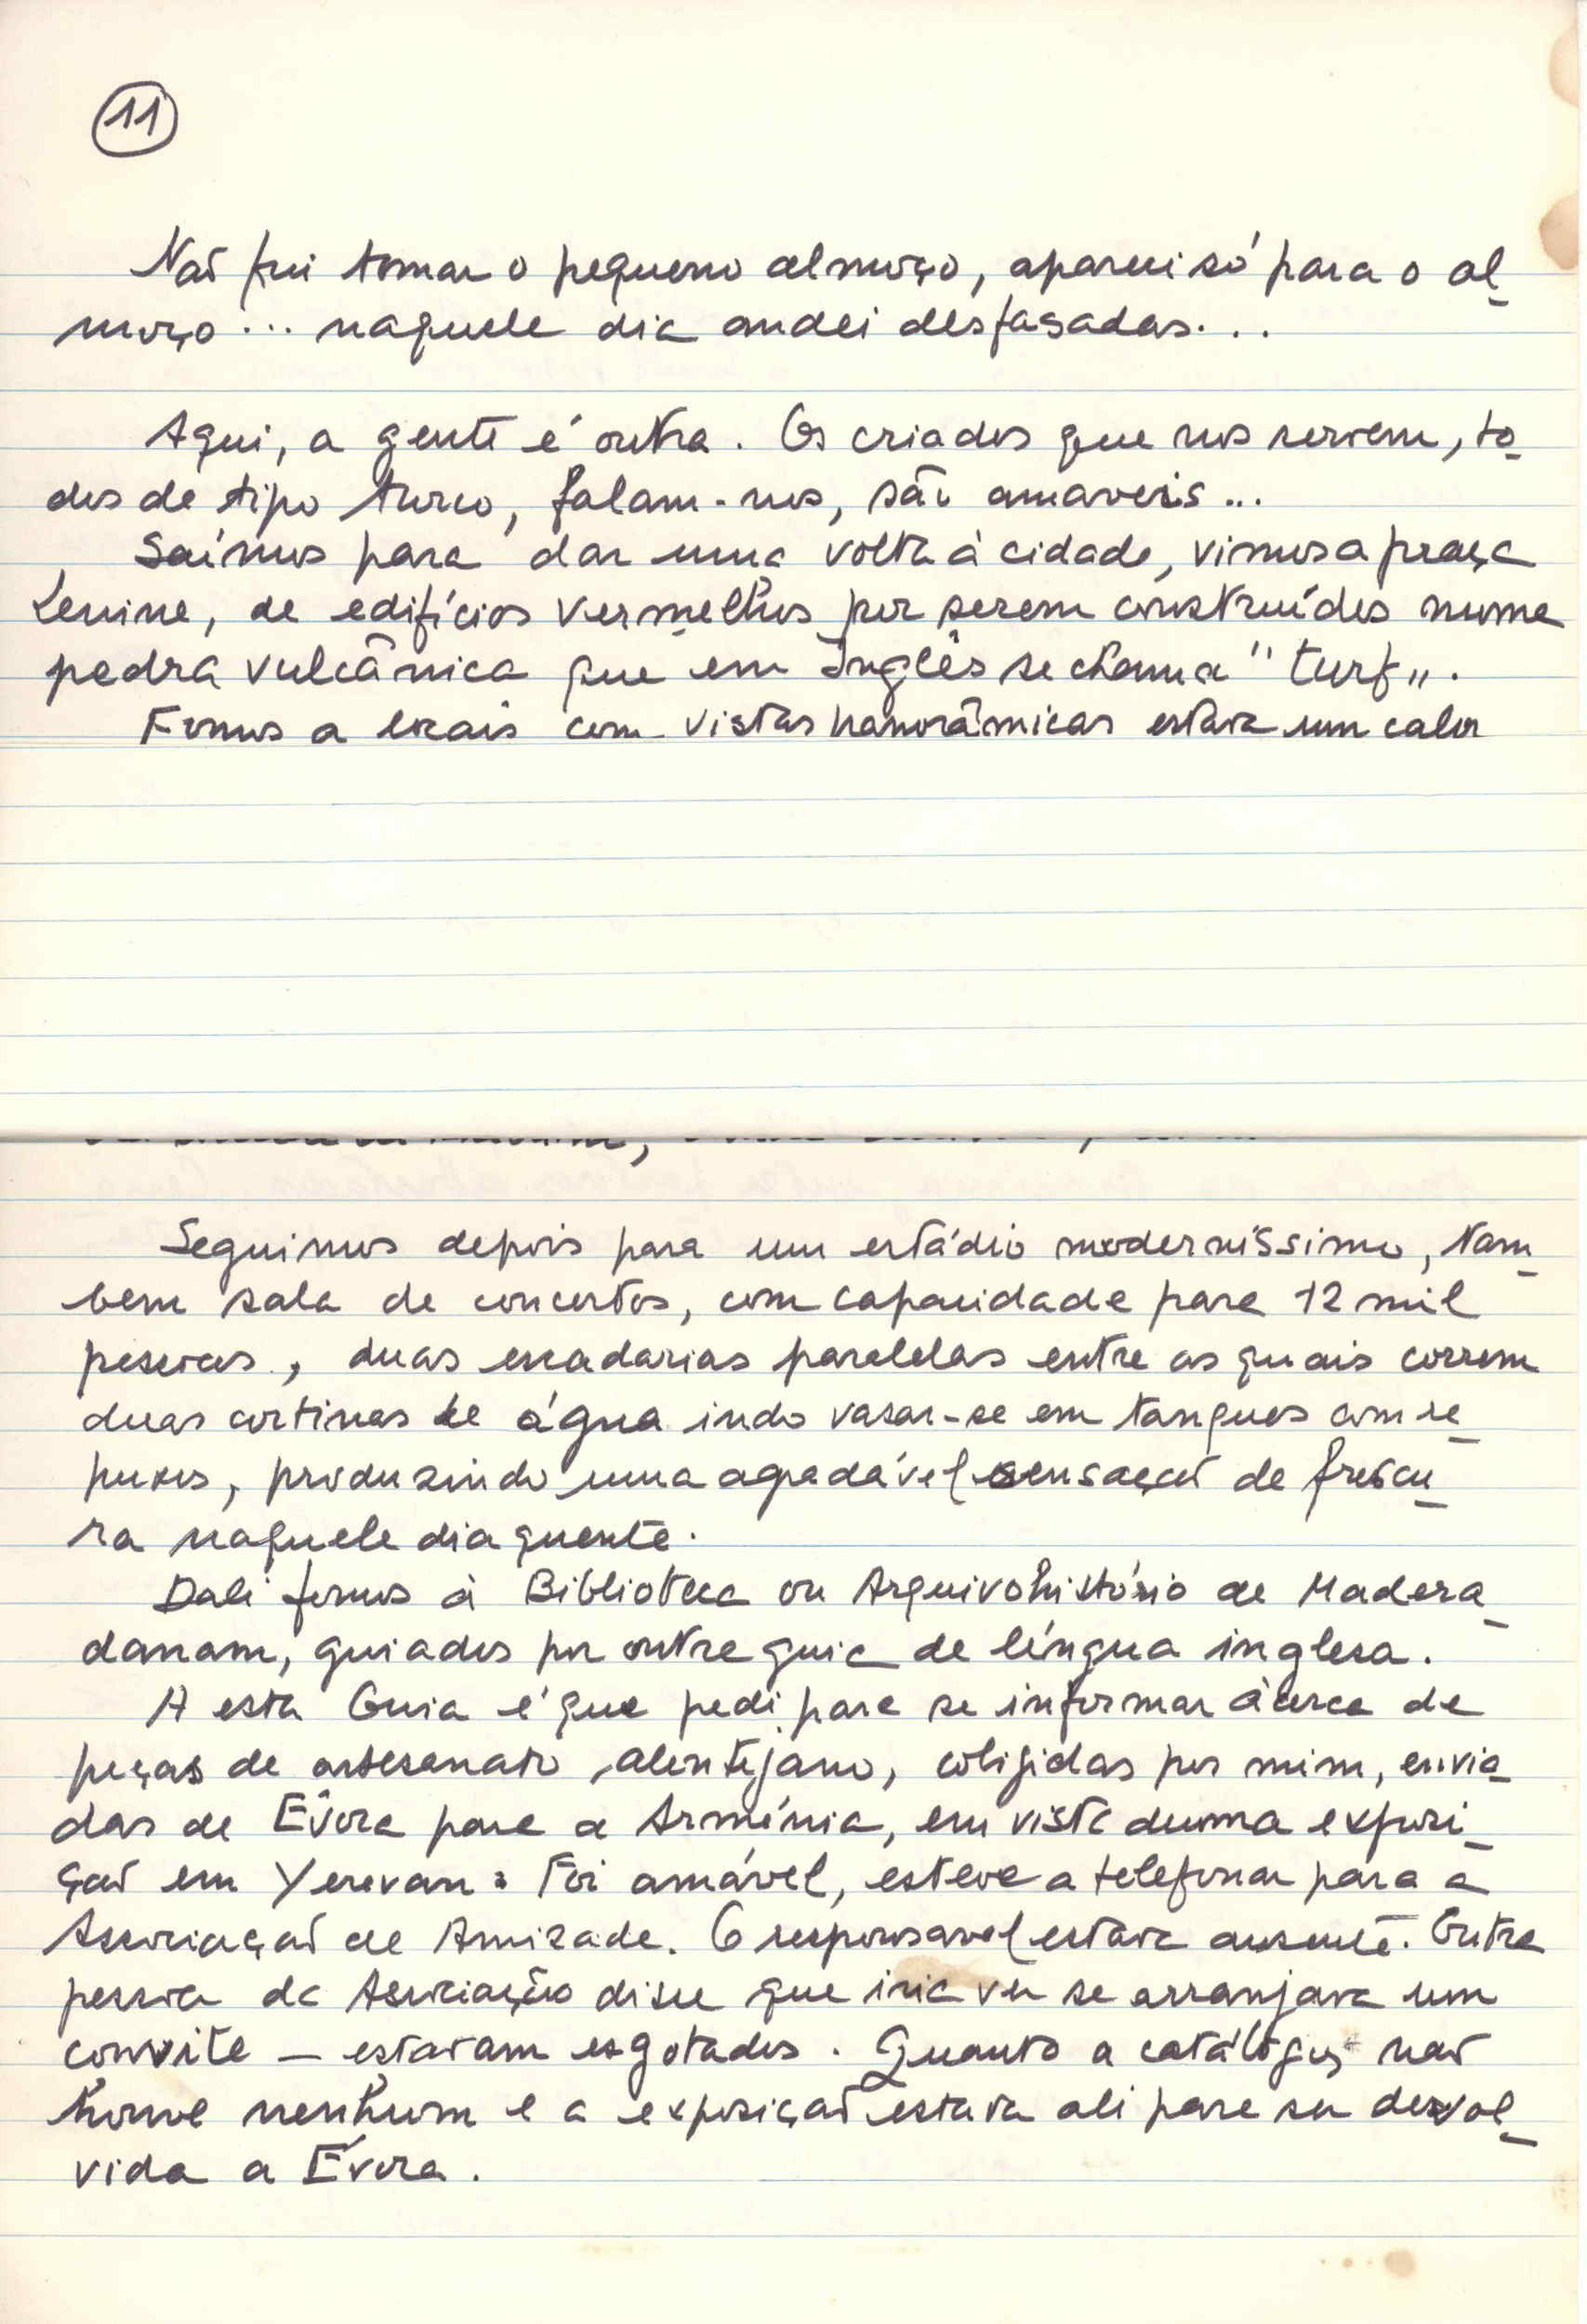 11
Não fui tomar o pequeno almoço, apareci só para o al
moço... naquele dia andei desfasada...
Aqui, a gente é outra. Os criados que nos servem, to
dos de tipo turco, falam-nos, são amaveis...
Saímos para dar uma volta à cidade, vimos a praça
Lenine, de edifícios vermelhos por serem construídos numa
pedra vulcânica que em Inglês se chama "turf".
Fomos a locais com vistas panorâmicas estava um calor
Seguimos depois para um estádio moderníssimo, tam
bem sala de concertos, com capacidade para 12 mil
pessoas, duas escadarias paralelas entre as quais correm
duas cortinas de água indo vasar-se em tanques com re
puxos, produzindo uma agradável sensação de frescu
ra naquele dia quente.
Dali fomos à Biblioteca ou Arquivo histório de Madera
danam, guiados por outra guia de língua inglesa.
A esta Guia é que pedi para se informar àcerca de
peças de artesanato alentejano, coligidas por mim, envia
das de Évora para a Arménia, em vista duma exposi
ção em Yerevan. Foi amável, esteve a telefonar para a
Associação de Amizade. O responsavel estava ausente. Outra
pessoa da Associação disse que iria ver se arranjava um
convite — estavam esgotados. Quanto a catálogos não
houve nenhum e a exposição estava ali para ser devol
vida a Évora.